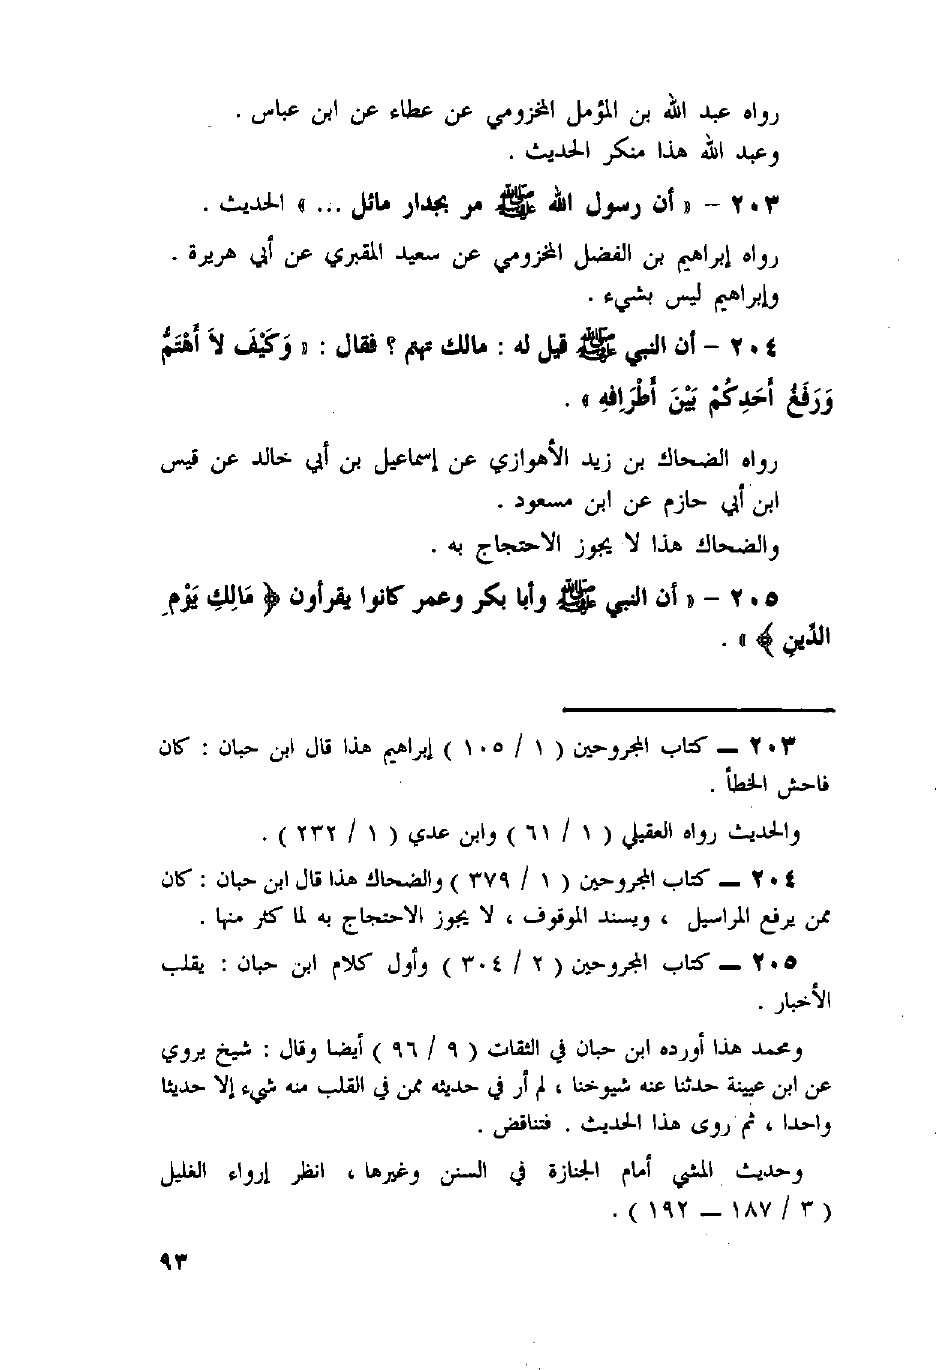 رواه عبد الله بن المؤمل المخزومي عن عطاء عن ابن عباس .
وعبد الله هذا منكر الحديث .
٢٠٣ – « أن رسول الله ﷺ مر بجدار مائل ... » الحديث .
رواه إبراهيم بن الفضل المخزومي عن سعيد المقبري عن أبي هريرة .
وإبراهيم ليس بشيء .
٢٠٤ – أن النبي ﷺ قيل له : مالك تهم ؟ فقال : « وَكَيْفَ لاَ أَهْتَمُّ
وَرَفْغُ أَحَدِكُمْ بَيْنَ أَطْرَافِهِ » .
رواه الضحاك بن زيد الأهوازي عن إسماعيل بن أبي خالد عن قيس
ابن أبي حازم عن ابن مسعود .
والضحاك هذا لا يجوز الاحتجاج به .
٢٠٥ – « أن النبي ﷺ وأبا بكر وعمر كانوا يقرأون ﴿ مَالِكِ يَوْمِ
الدِّينِ ﴾ » .
٢٠٣ ــ كتاب المجروحين ( ١ / ١٠٥ ) إبراهيم هذا قال ابن حبان : كان
فاحش الخطأ .
والحديث رواه العقيلي ( ١ / ٦١ ) وابن عدي ( ١ / ٢٣٢ ) .
٢٠٤ ــ كتاب المجروحين ( ١ / ٣٧٩ ) والضحاك هذا قال ابن حبان : كان
ممن يرفع المراسيل ، ويسند الموقوف ، لا يجوز الاحتجاج به لما كثر منها .
٢٠٥ ــ كتاب المجروحين ( ٢ / ٣٠٤ ) وأول كلام ابن حبان : يقلب
الأخبار .
ومحمد هذا أورده ابن حبان في الثقات ( ٩ / ٩٦ ) أيضا وقال : شيخ يروي
عن ابن عيينة حدثنا عنه شيوخنا ، لم أر في حديثه ممن في القلب منه شيء إلا حديثا
واحدا ، ثم روى هذا الحديث . فتناقض .
وحديث المشي أمام الجنازة في السنن وغيرها ، انظر إرواء الغليل
( ٣ / ١٨٧ ــ ١٩٢ ) .
٩٣